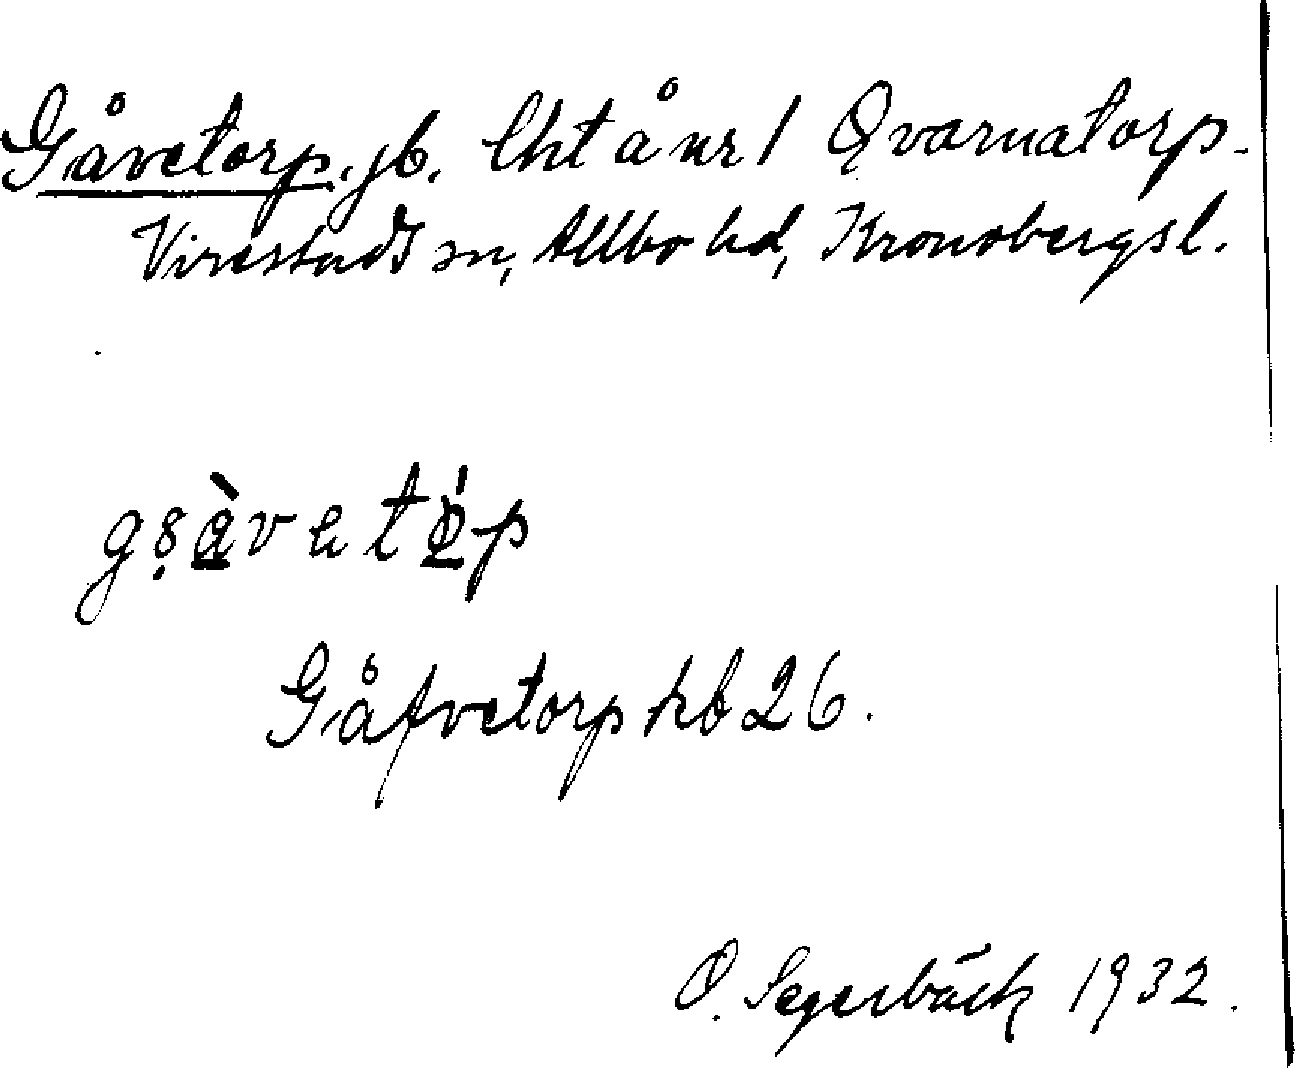 Gåvetorp. jb. lht å nr 1 Qvarnatorp.
Virestads sn, Allbo hd, Kronobergs l.
Gåfvetorp kb 26.
O. Segerbäck 1932.